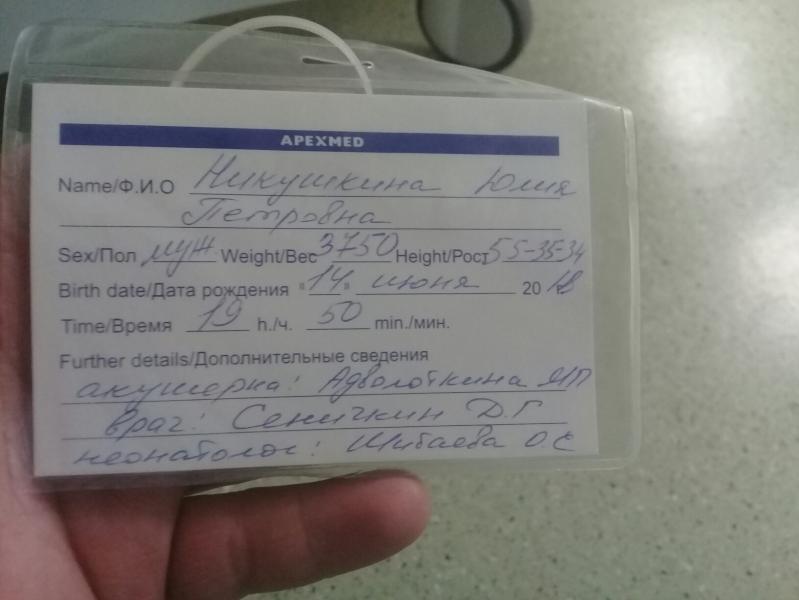 APEXMED
Name/Ф.И.О Никушкина Юлия
Петровна
Sex/Пол муж Weight/Вес 3750 Height/Рост 55-35-34
Birth date/Дата рождения "14" июня 2018
Time/Время 19 h./ч. 50 min./мин.
Further details/Дополнительные сведения
акушерка: Адволоткина МП
врач: Сеничкин Д.Г
неонатолог: Шибаева О.С